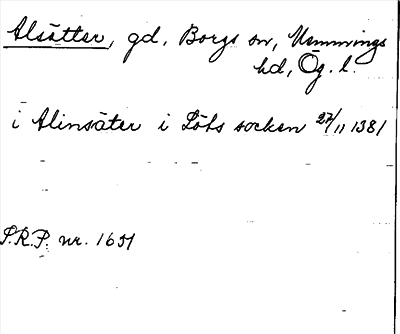 Alsätter, gd, Borgs sn, Memmings
hd, Ög. l.
i Alinsäter i Löts socken 27/11 1381
S.R.P. nr. 1651